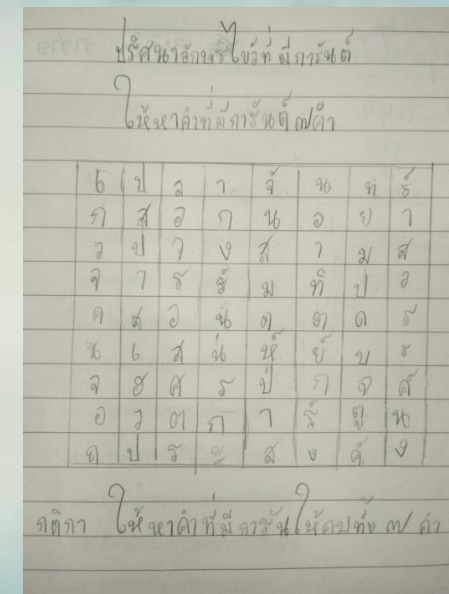 ปริศนาอักษรไขว้ที่มีการันต์
ให้หาคำที่มีการันต์ ๗ คำ
เ ป ล า จั น ท ร์
ก ส อ ก น อ ย า
ว ป า ง ส า ม ส
จ า ร ร์ ม ทิ ป ว
ค ส อ น ต ต ด ร
น เ ส น่ ห์ ย์ บ ร
จ ฮ ศ ร ป ก จ ศ์
อ ว ต ก า ร์ ตู น
ถ ป ร ะ ส ง ค์ ง
กติกา ให้หาคำที่มีการันให้ครบทั้ง ๗ คำ